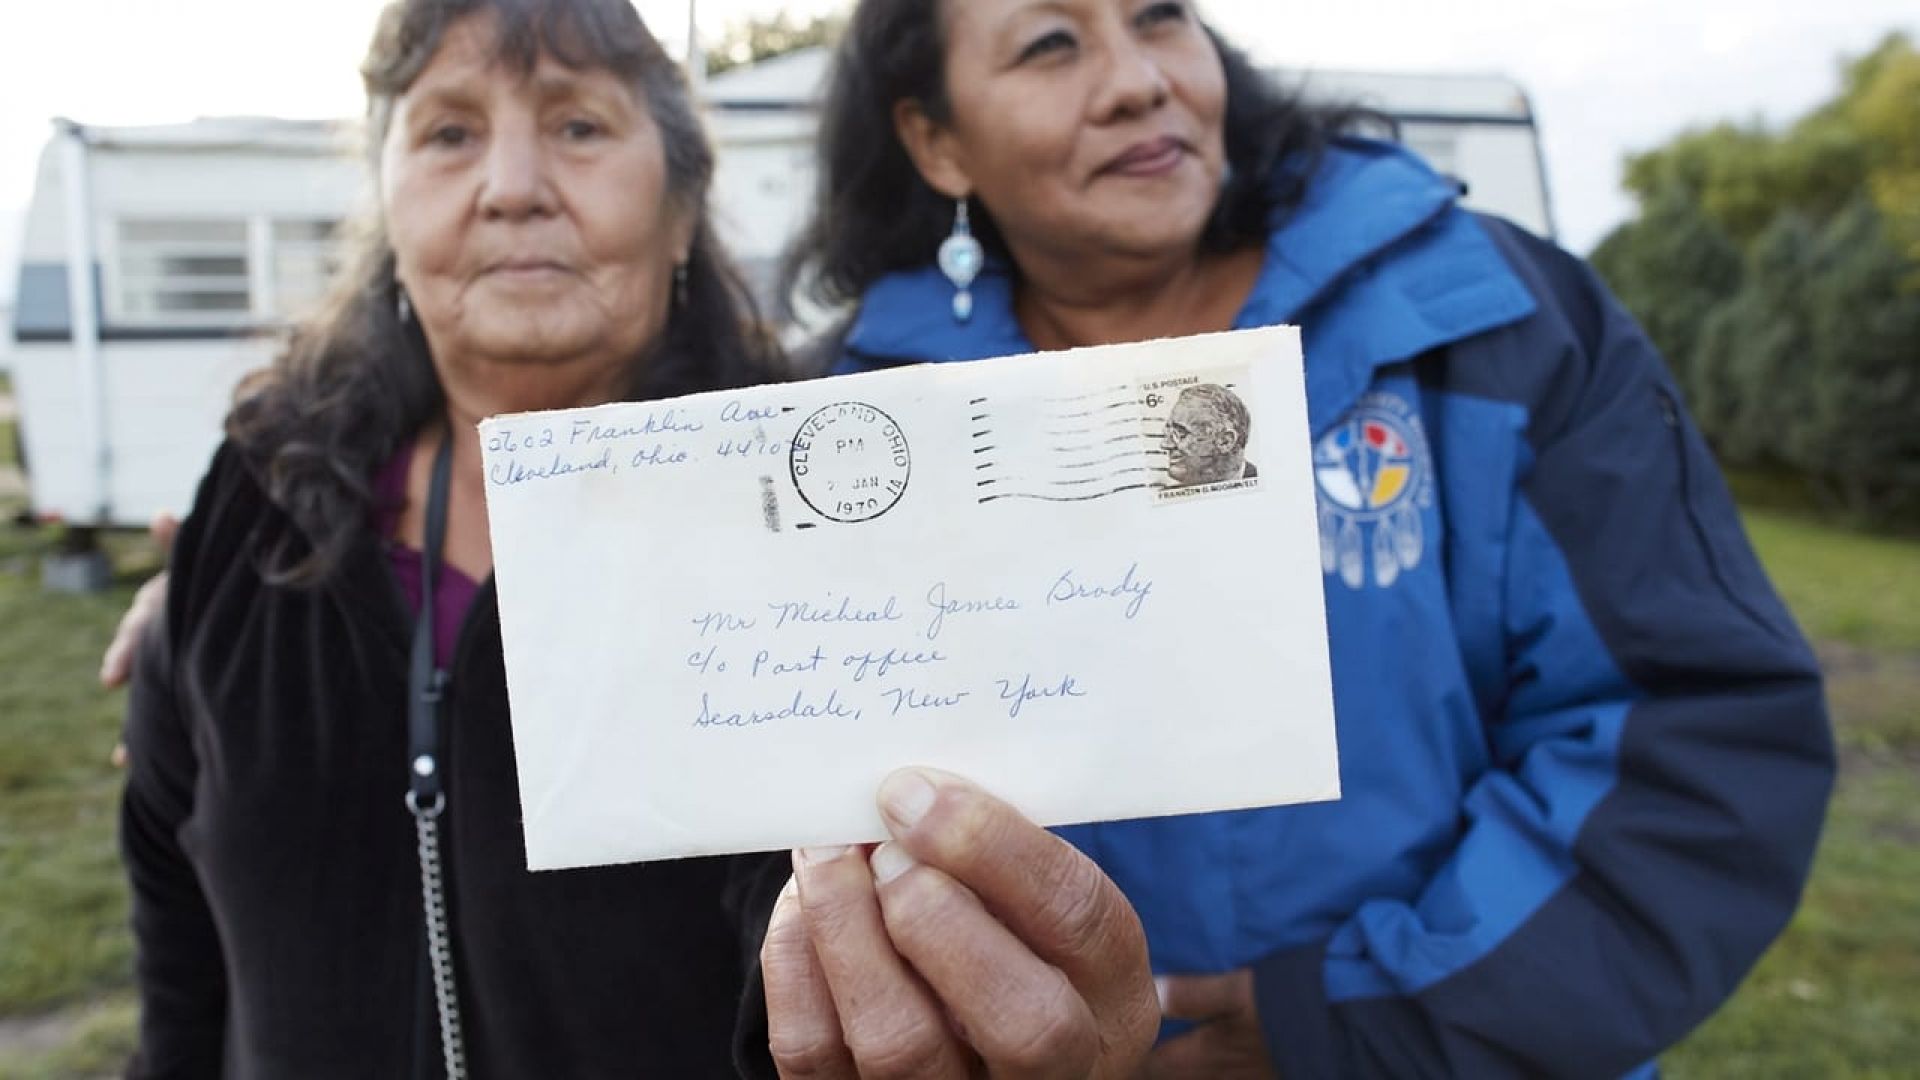 2602 Franklin Ave
Cleveland, Ohio. 4410
CLEVELAND OHIO
PM
JAN
1970
U.S. POSTAGE
6c
FRANKLIN D. ROOSEVELT
Mr Micheal James Brody
c/o Post office
Scarsdale, New York